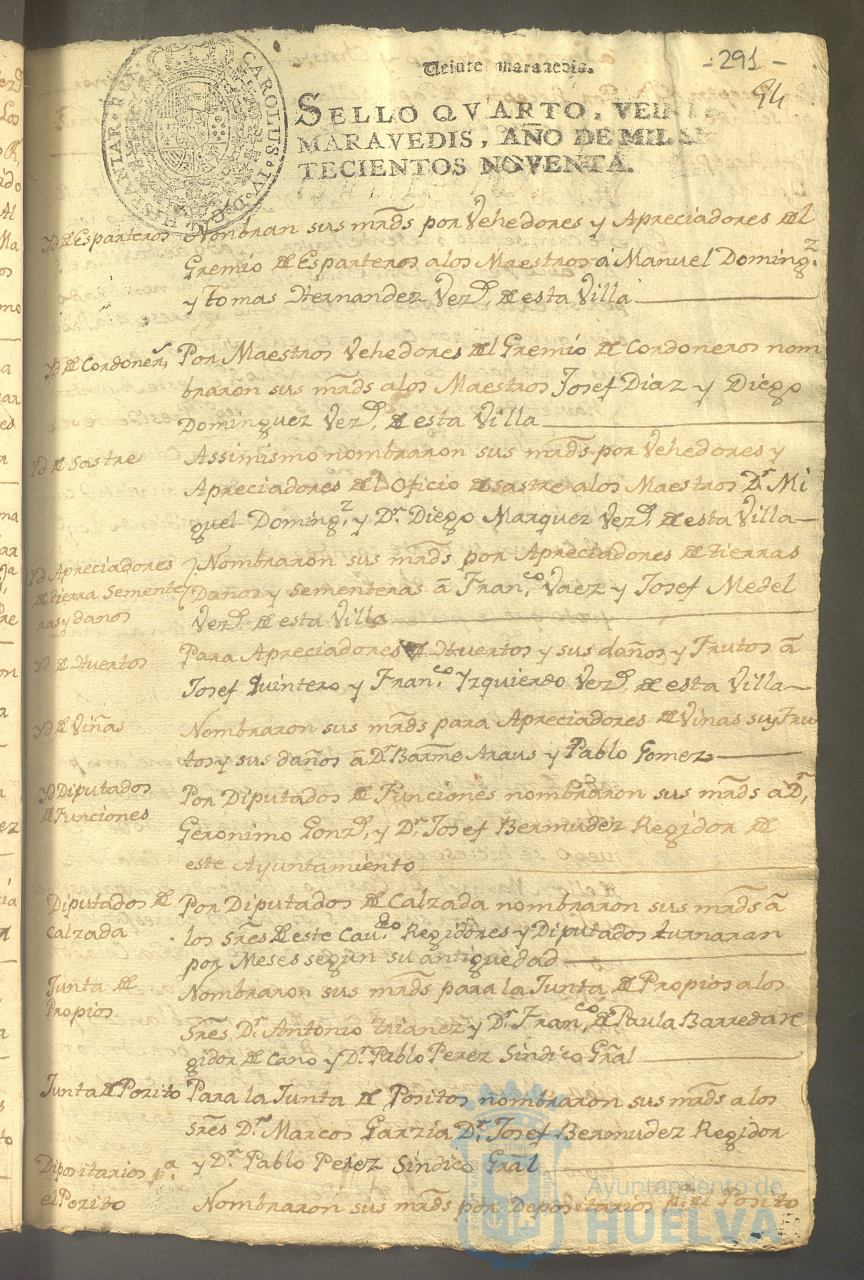 Veinte maravedis.
- 291 -
94
CAROLUS · IV · D · G · HISPANIAR · REX
SELLO QVARTO, VEINTE
MARAVEDIS, AÑO DE MIL SE
TECIENTOS NOVENTA.
Yd de Esparteros
Nombran sus mrds por Vehedores y Apreciadores del
Gremio de Esparteros a los Maestros a Manuel Domingz
y Tomas Hernandez Vezs de esta Villa
Yd de Cordoners
Por Maestros Vehedores del Gremio de Cordoneros nom
braron sus mrds a los Maestros Josef Diaz y Diego
Dominguez Vezs de esta Villa
Yd de Sastre
Assimismo nombraron sus mrds por Vehedores y
Apreciadores del Oficio de sastre a los Maestros Dn Mi
guel Domingz y Dn Diego Marquez Vezs de esta Villa
Yd Apreciadores
de tierra Semente
ras y danos
Nombraron sus mrds por Apreciadores de tierras
Daños y sementeras a Franco Vaez y Josef Medel
Vezs de esta Villa
Yd de Huertos
Para Apreciadores de Huertos y sus daños y Frutos a
Josef Quintero y Franco Yzquierdo Vezs de esta Villa
Yd de Viñas
Nombraron sus mrds para Apreciadores de Vinas sus Fru
tos y sus daños a Dn Barme Araus y Pablo Gomez
Yd Diputados
de Funciones
Por Diputados de Funciones nombraron sus mrds a Dn
Geronimo Gonz y Dn Josef Bermudez Regidor de
este Ayuntamiento
Diputados de
Calzada
Por Diputados de Calzada nombraron sus mrds a
los Sres de este Cavdo Regidores y Diputados turnaran
por Meses segun su antiguedad
Junta de
Propios
Nombraron sus mrds para la Junta de Propios a los
Sres Dn Antonio Trianez y Dn Franco de Paula Barreda Re
gidor de cano y Dn Pablo Perez Sindico Gral
Junta de Pozito
Para la Junta de Positos nombraron sus mrds a los
Sres Dn Marcos Garzia Dn Josef Bermudez Regidor
y Dn Pablo Perez Sindico Gral
Dipositarios pa
el Pozito
Nombraron sus mrds por Depositarios pa el Posito
Ayuntamiento de
HUELVA